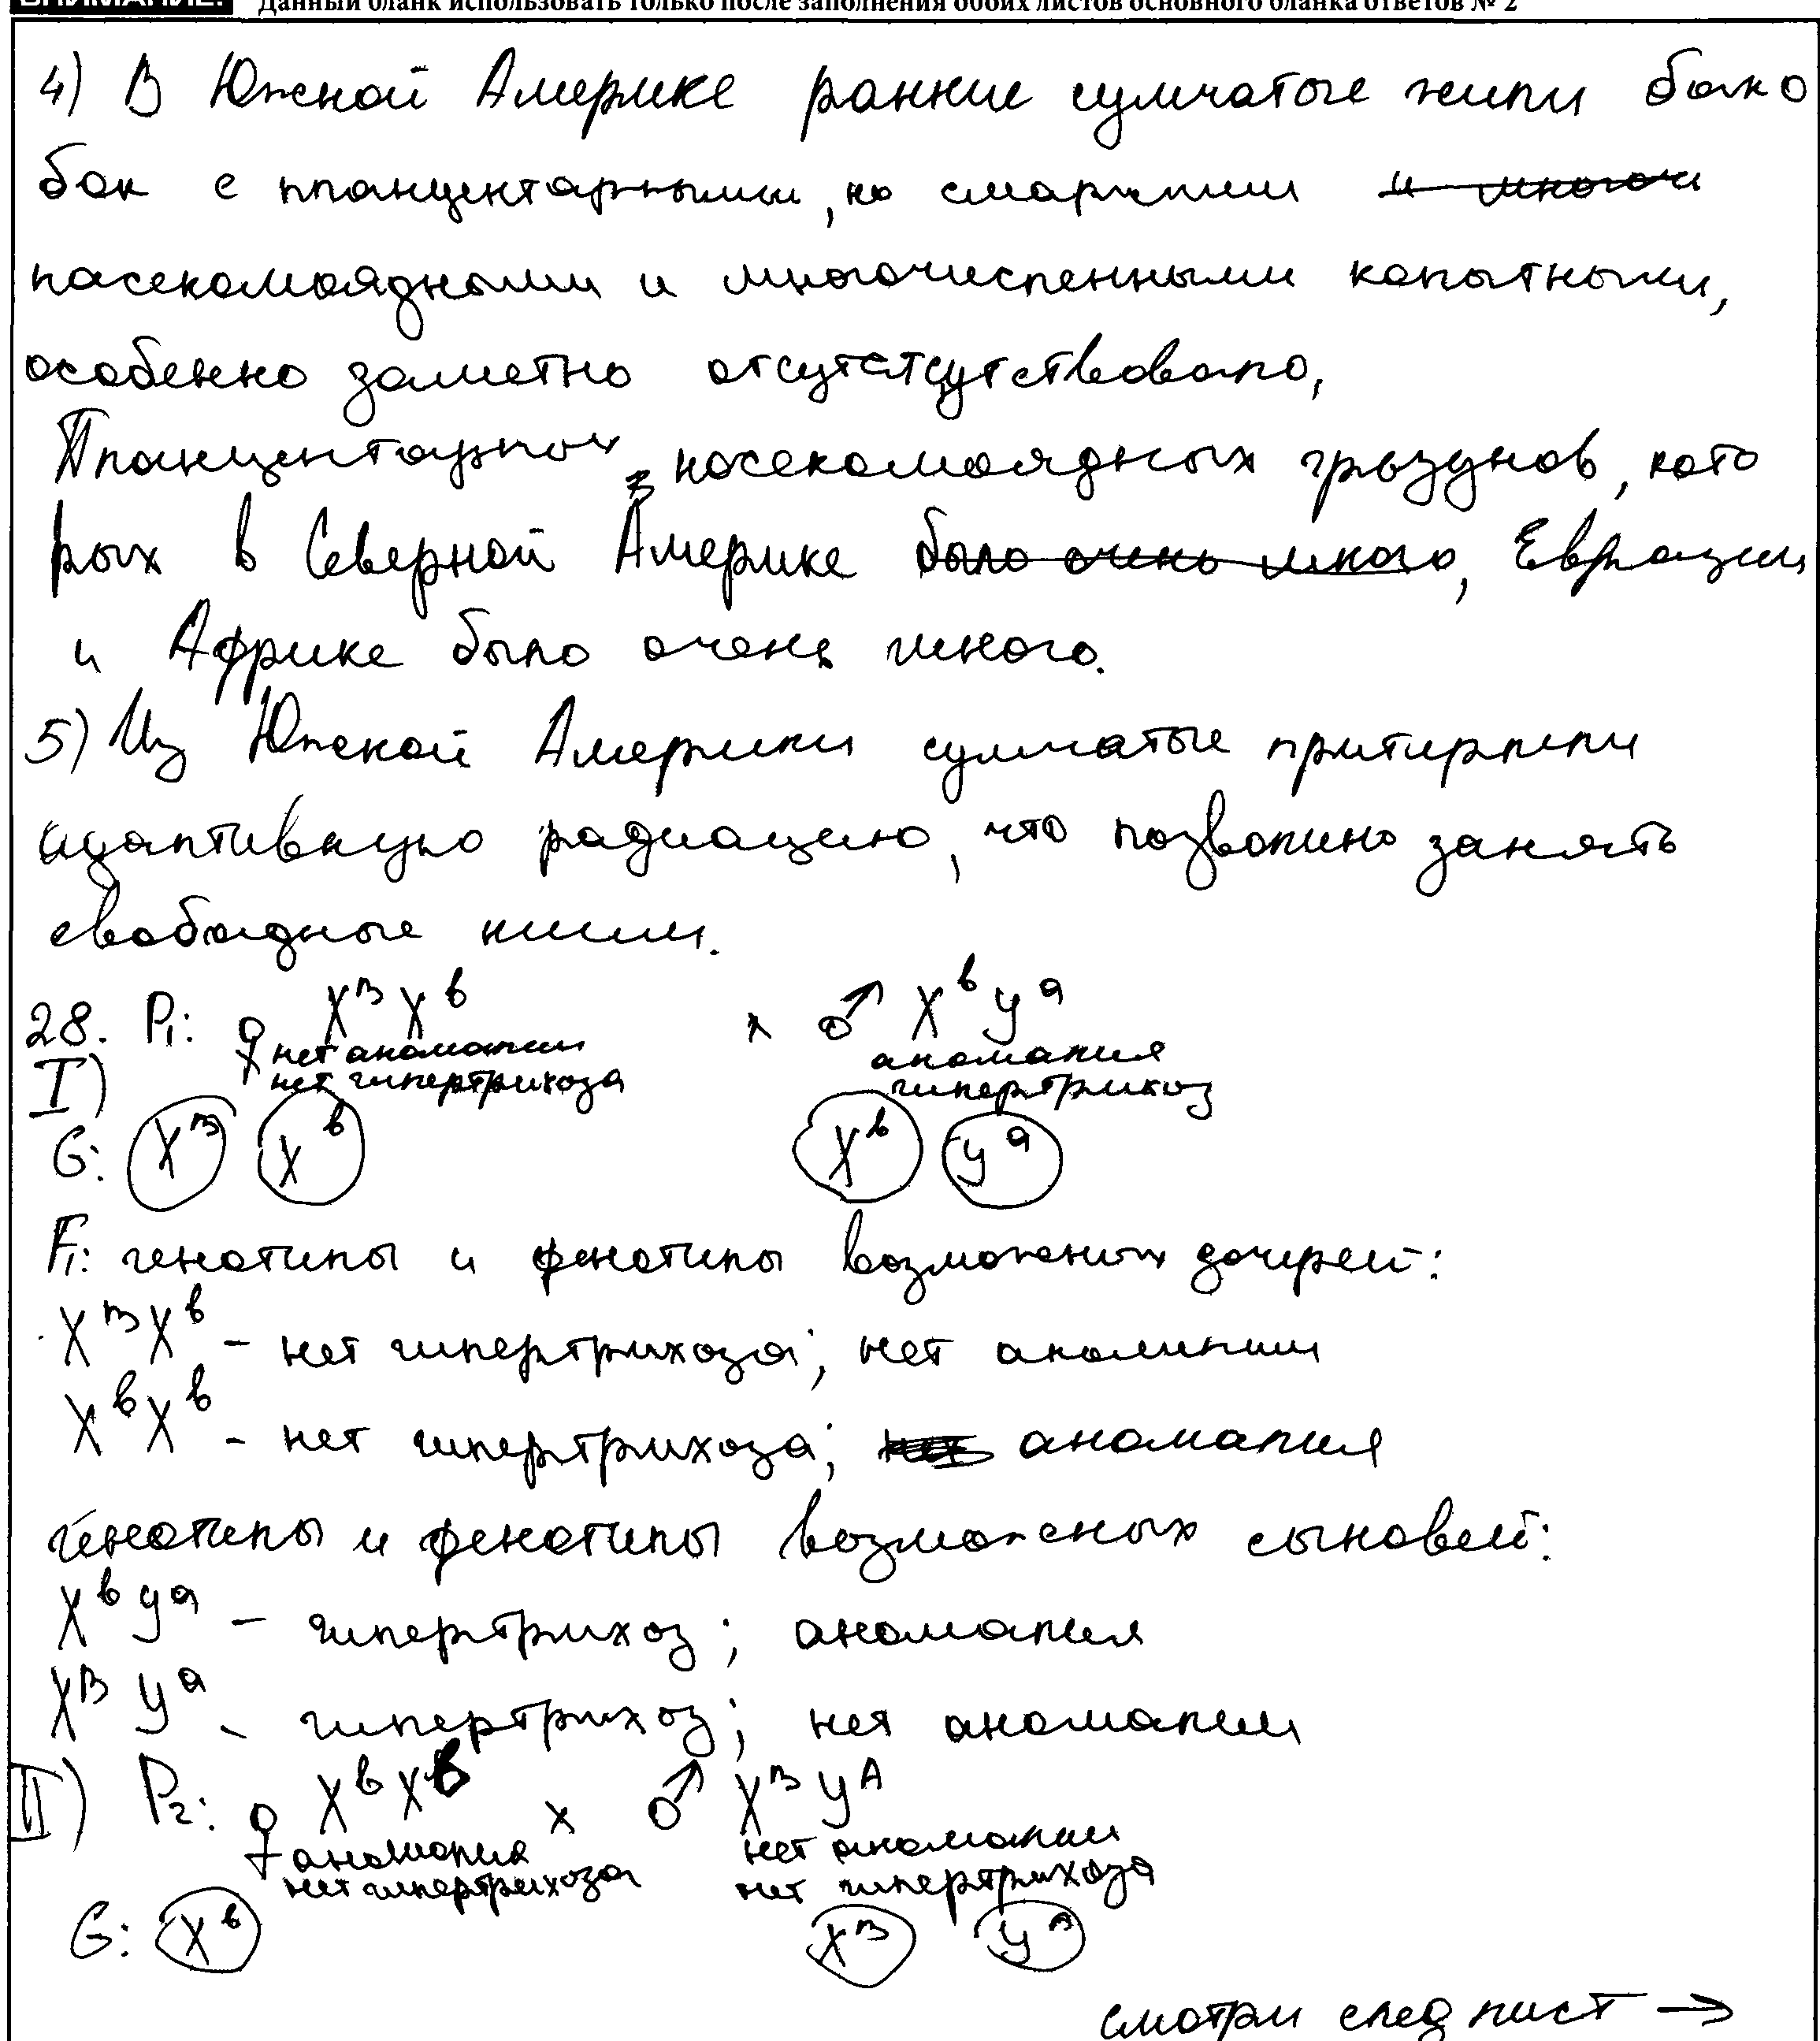 ВНИМАНИЕ! Данный бланк использовать только после заполнения обоих листов основного бланка ответов № 2
4) В Южной Америке ранние сумчатые жили бок о
бок с планцентарными, но
насекомоядными и многочисленными копытными,
особенно заметно отсутстсутствовало,
Планцентарных насекомоядных грызунов, кото
рых в Северной Америке было очень много, Евразии
и Африке было очень много.
5) Из Южной Америки сумчатые притирпели
адаптивную радиацию, что позволило занять
свободные ниши.
28. P₁: ♀ XᴮXᵇ × ♂ XᵇYᵃ
нет аномалии аномалия
I) нет гипертрихоза гипертрихоз
G: Xᴮ Xᵇ Xᵇ Yᵃ
F₁: генотипы и фенотипы возможных дочерей:
XᴮXᵇ – нет гипертрихоза; нет аномалии
XᵇXᵇ – нет гипертрихоза; аномалия
генотипы и фенотипы возможных сыновей:
XᵇYᵃ – гипертрихоз; аномалия
XᴮYᵃ – гипертрихоз; нет аномалии
II) P₂: ♀ XᵇXᵇ × ♂ XᴮYᴬ
аномалия нет аномалии
нет гипертрихоза нет гипертрихоза
G: Xᵇ Xᴮ Yᴬ
смотри след лист →